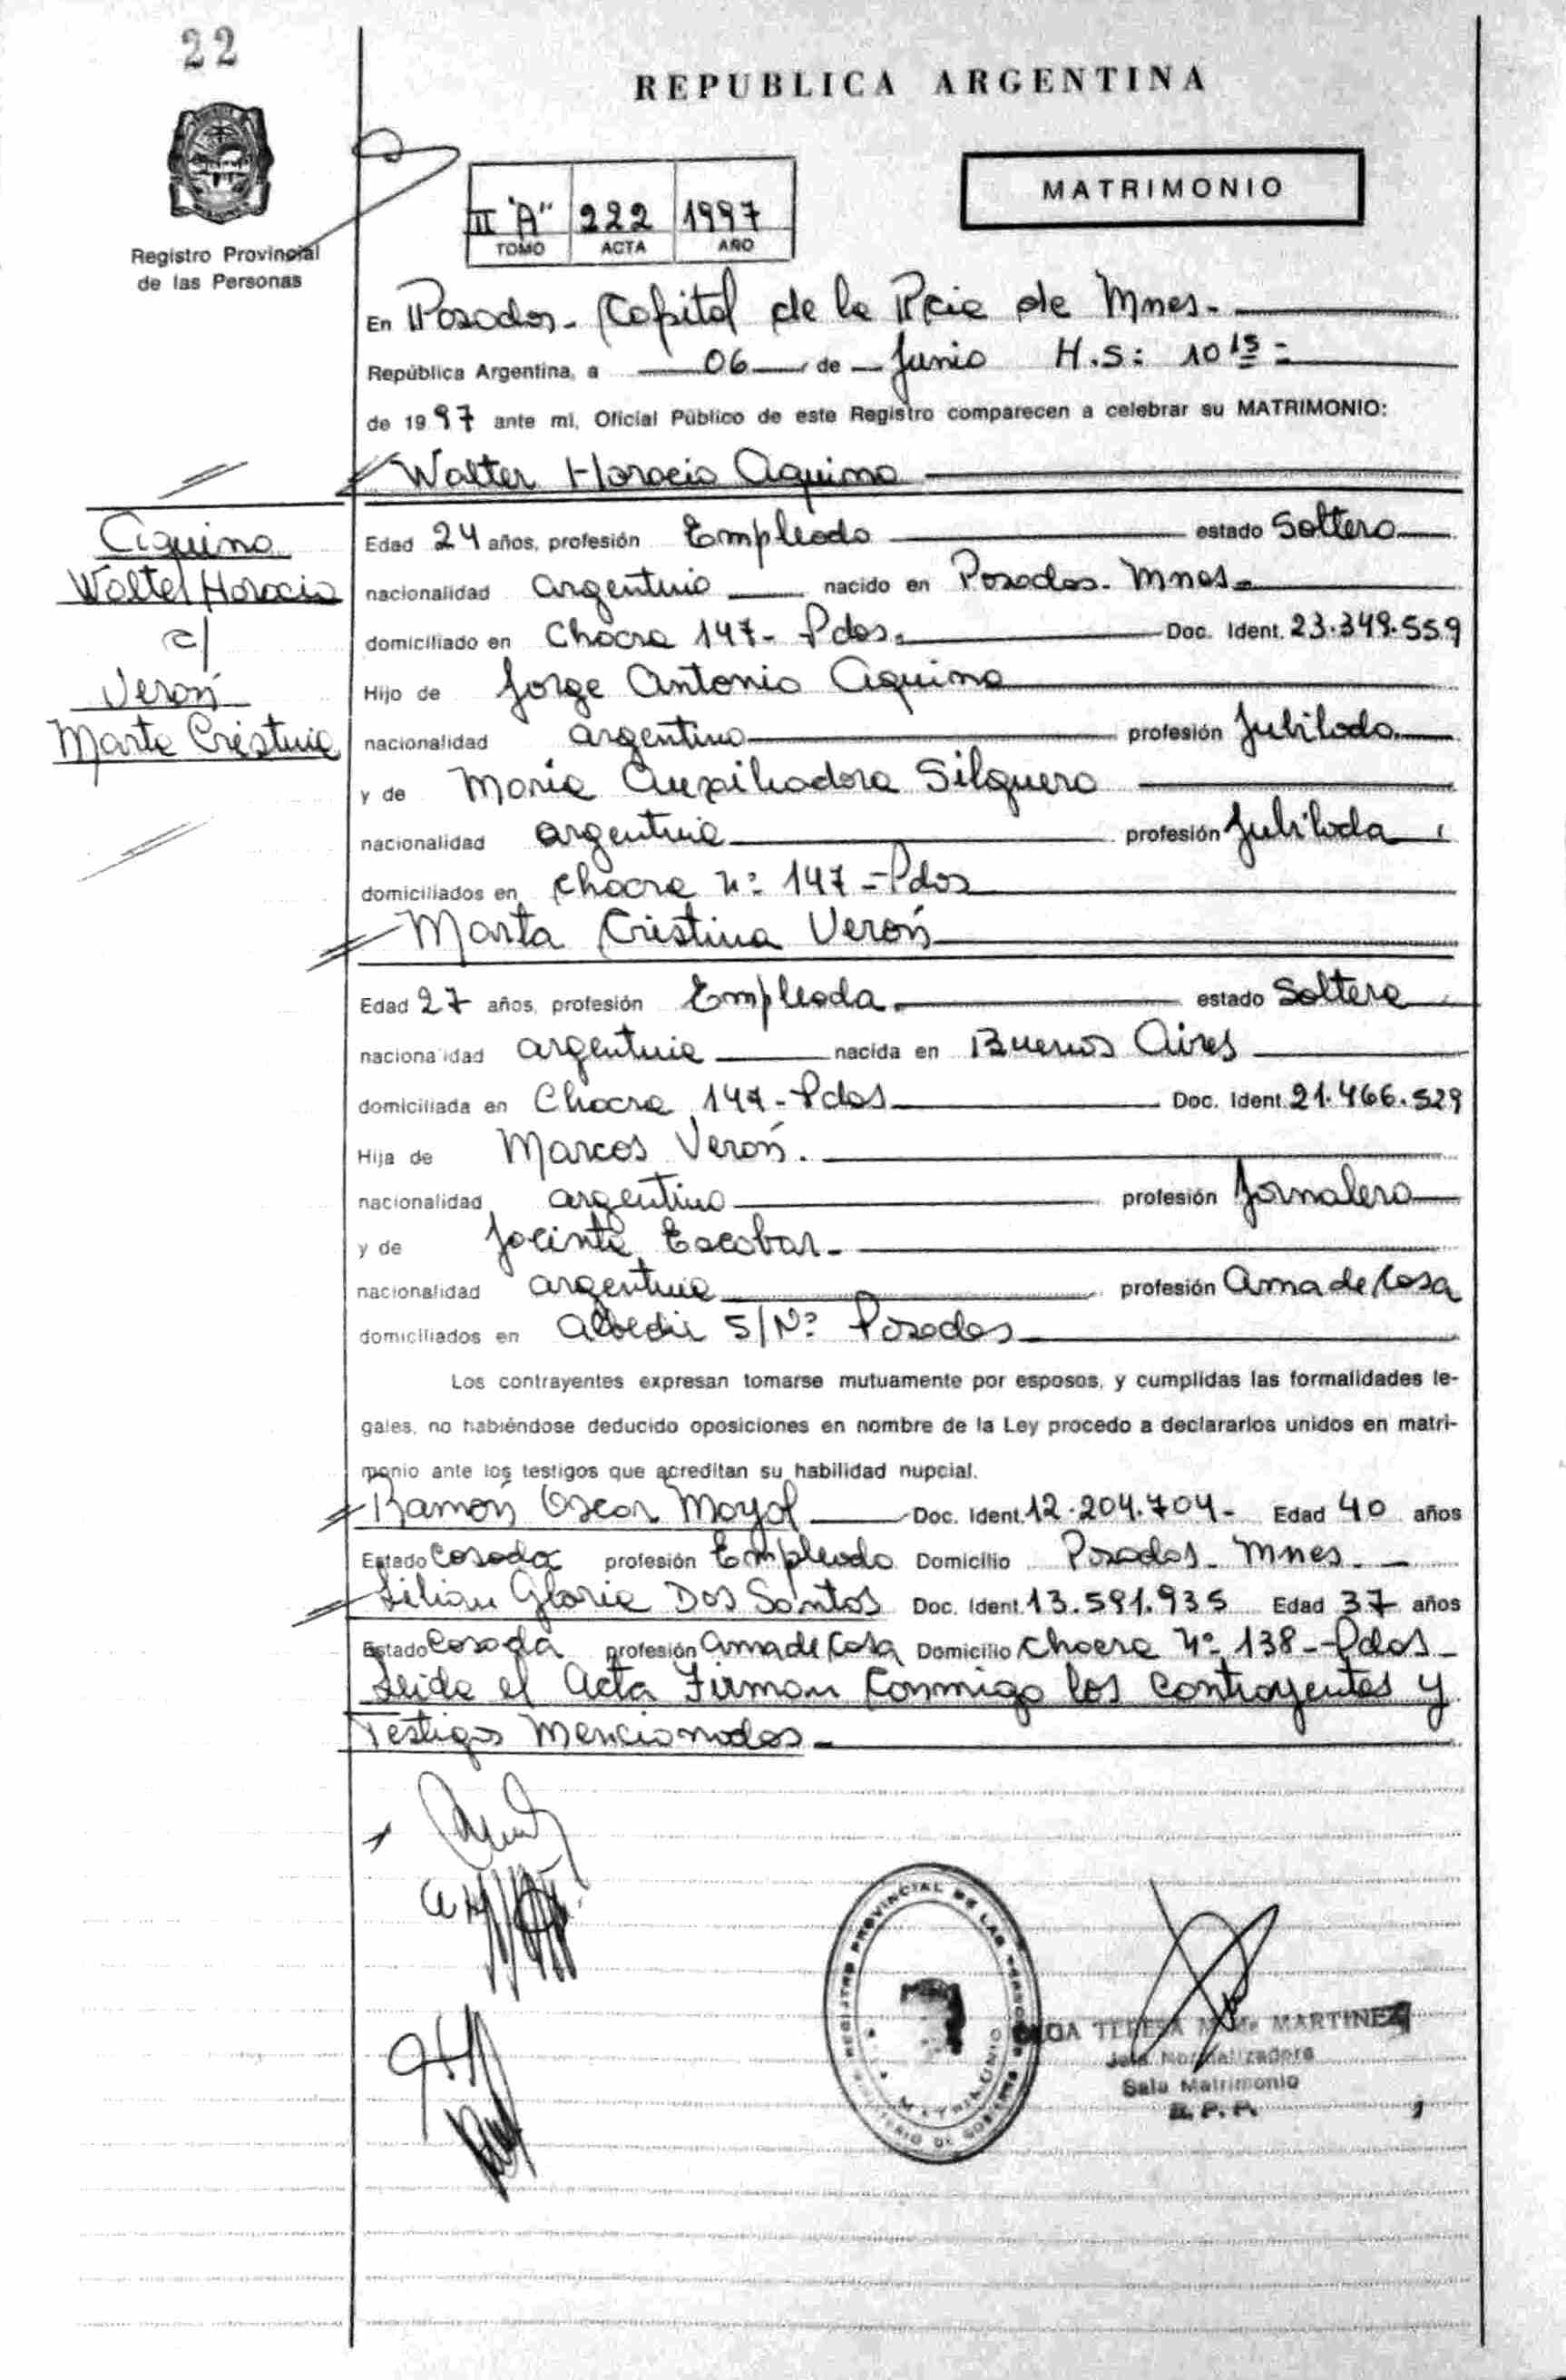 22
REPUBLICA ARGENTINA
MATRIMONIO
II "A" 222 1997
TOMO ACTA AÑO
Registro Provincial
de las Personas
En Posadas - Capital de la Pcia de Mnes.
República Argentina, a 06 de Junio H.S: 10 15
de 1997 ante mi, Oficial Público de este Registro comparecen a celebrar su MATRIMONIO:
Walter Horacio Aquino
Aquino
Walter Horacio
c/
Verón
Marta Cristina
Edad 24 años, profesión Empleado estado Soltero
nacionalidad argentino nacido en Posadas - Mnes
domiciliado en Chacra 147 - Pdas. Doc. Ident. 23.349.559
Hijo de Jorge Antonio Aquino
nacionalidad argentino profesión Jubilado
y de Maria Auxiliadora Silguero
nacionalidad argentina profesión Jubilada
domiciliados en chacra nº 147 - Pdas
Marta Cristina Verón
Edad 27 años, profesión Empleada estado Soltera
nacionalidad argentina nacida en Buenos Aires
domiciliada en Chacra 147 - Pdas Doc. Ident. 21.466.529
Hija de Marcos Verón.
nacionalidad argentino profesión Jornalero
y de Jacinta Escobar -
nacionalidad argentina profesión Ama de Casa
domiciliados en S/Nº Posadas
Los contrayentes expresan tomarse mutuamente por esposos, y cumplidas las formalidades le-
gales, no habiéndose deducido oposiciones en nombre de la Ley procedo a declararlos unidos en matri-
monio ante los testigos que acreditan su habilidad nupcial.
Ramón Oscar Moyol Doc. Ident. 12.204.704 - Edad 40 años
Estado Casado profesión Empleado Domicilio Posadas - Mnes.
Lilian Gloria Dos Santos Doc. Ident. 13.591.935 Edad 37 años
Estado Casada profesión ama de Casa Domicilio Chacra Nº 138 - Pdas -
Leida el Acta Firman conmigo los contrayentes y
Testigos Mencionados -
REGISTRO PROVINCIAL DE LAS PERSONAS
MATRIMONIO
MINISTERIO DE GOBIERNO
TERESA M. de MARTINEZ
Jefa Normalizadora
Sala Matrimonio
R. P. P.